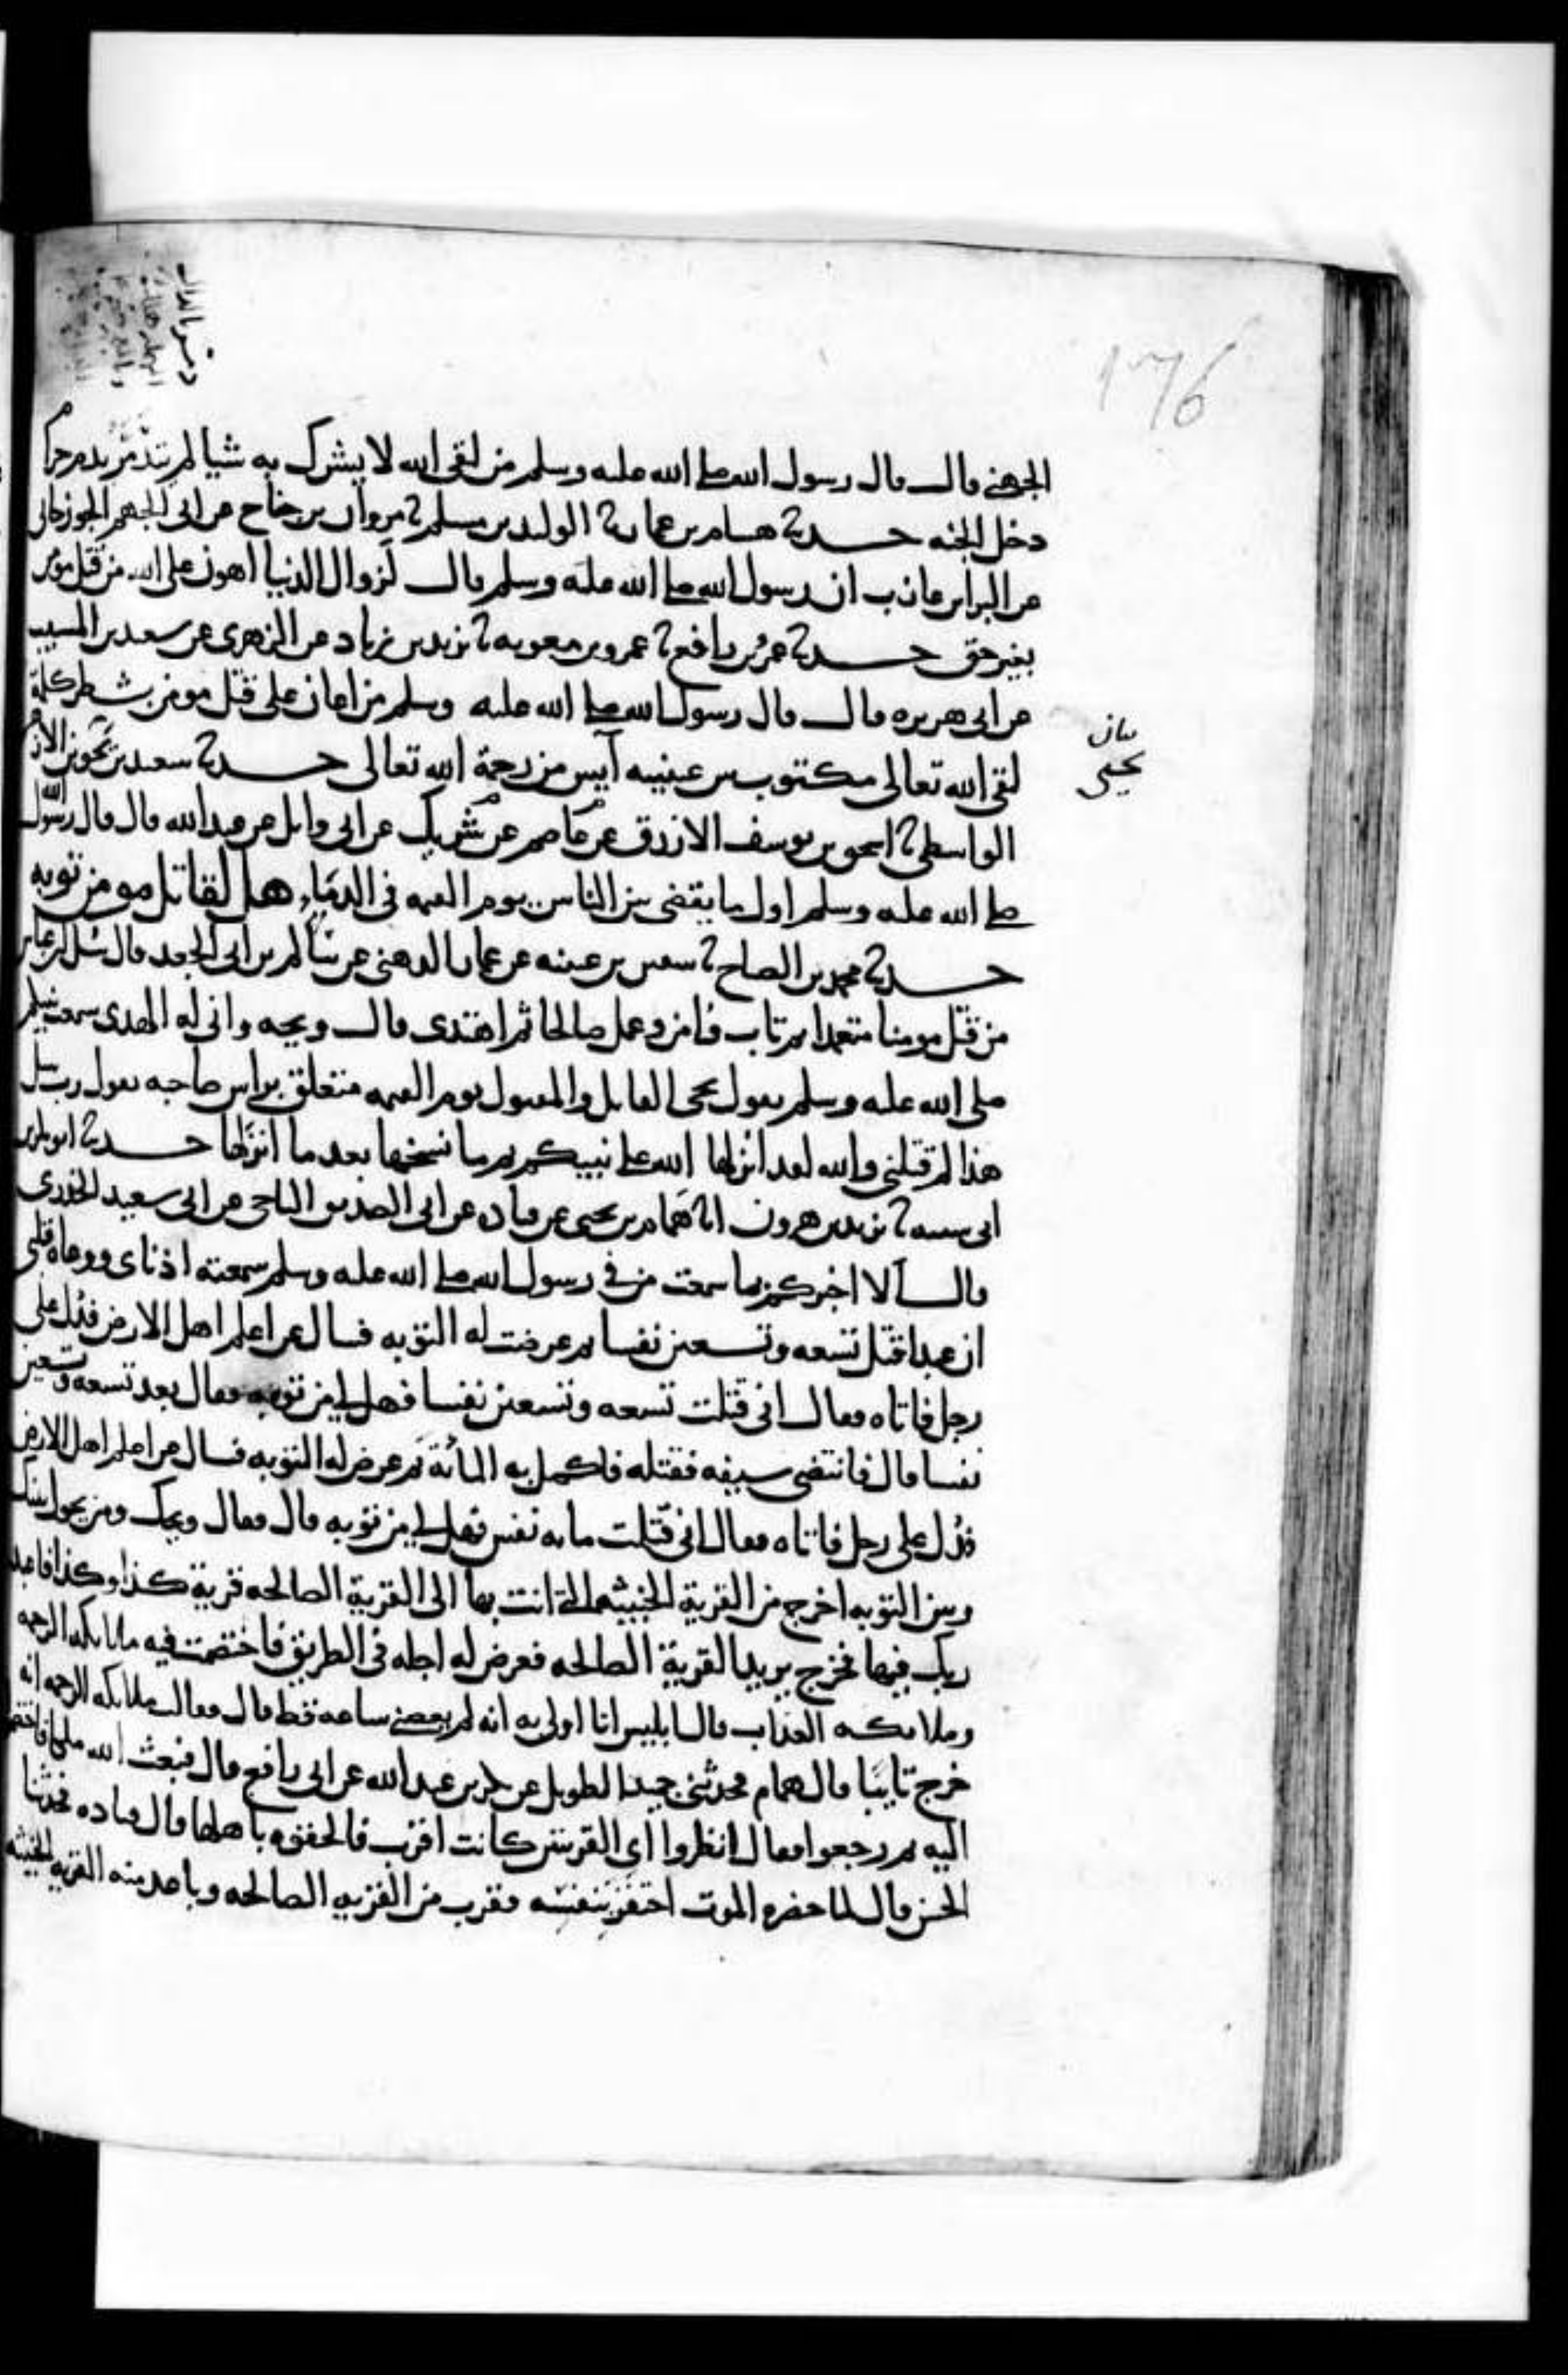 176
الجهني قال قال رسول الله صلى الله عليه وسلم من لقى الله لا يشرك به شيا لم يتندّ بدم حرام
دخل الجنه حدثنا هشام بن عمار نا الوليد بن مسلم نا مروان بن جناح عن ابى الجهم الجوزجانى
عن البرا بن عازب ان رسول الله صلى الله عليه وسلم قال لزوال الدنيا اهون على الله من قتل مومن
بغير حق حدثنا عمرو بن رافع نا عمرو بن معويه نا يزيد بن زياد عن الزهرى عن سعيد بن المسيب
عن ابى هريره قال قال رسول الله صلى الله عليه وسلم من اعان على قتل مومن بشطر كلمة
لقى الله تعالى مكتوب بين عينيه آيس من رحمة الله تعالى حدثنا سعيد بن يحيى بن الازهر
بيان
يحيى
الواسطى نا اسحق بن يوسف الازرق عن عاصم عن شريك عن ابى وايل عن عبد الله قال قال رسول الله
صلى الله عليه وسلم اول ما يقضى بين الناس يوم القيمه فى الدماء هل لقاتل مومن توبه
حدثنا محمد بن الصباح نا سفين بن عيينه عن عمار الدهنى عن سالم بن ابى الجعد قال سئل ابن عباس
من قتل مومنا متعمدا ثم تاب وامن وعمل صالحا ثم اهتدى قال ويحه وانى له الهدى سمعت نبيكم
صلى الله عليه وسلم يقول يجى القاتل والمقتول يوم القيمه متعلق براس صاحبه يقول رب سل
هذا لم قتلنى والله لقد انزلها الله على نبيكم ثم ما نسخها بعد ما انزلها حدثنا ابو بكر بن
ابى شيبه نا يزيد بن هرون انا همام بن يحيى عن قتاده عن ابى الصديق الناجى عن ابى سعيد الخدرى
قال الا اخبركم بما سمعت من فى رسول الله صلى الله عليه وسلم سمعته اذناى ووعاه قلبى
ان عبدا قتل تسعه وتسعين نفسا ثم عرضت له التوبه فسال عن اعلم اهل الارض فدل على
رجل فاتاه فقال انى قتلت تسعه وتسعين نفسا فهل لى من توبه فقال بعد تسعه وتسعين
نفسا قال فانتضى سيفه فقتله فاكمل به المائة ثم عرض له التوبه فسال عن اعلم اهل الارض
فدل على رجل فاتاه فقال انى قتلت مايه نفس فهل لى من توبه قال فقال ويحك ومن يحول بينك
وبين التوبه اخرج من القرية الخبيثه التى انت بها الى القرية الصالحه قرية كذا وكذا فاعبد
ربك فيها فخرج يريد القرية الصالحه فعرض له اجله فى الطريق فاختصمت فيه ملايكه الرحمه
وملايكه العذاب قال ابليس انا اولى به انه لم يعصنى ساعه قط قال فقالت ملايكه الرحمه انه
خرج تايبا قال همام فحدثنى حميد الطويل عن بكر بن عبد الله عن ابى رافع قال فبعث الله ملكا فاختصموا
اليه ثم رجعوا فقال انظروا اى القريتين كانت اقرب فالحقوه باهلها قال قتاده فحدثنا
الحسن قال لما حضره الموت احتفز بنفسه فقرب من القريه الصالحه وباعد منه القريه الخبيثه